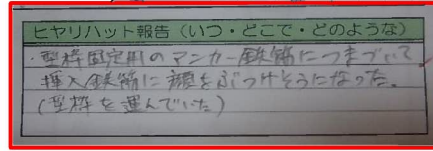 ヒヤリハット報告（いつ・どこで・どのような）
・型枠固定用のアンカー鉄筋につまづいて
挿入鉄筋に顔をぶつけそうになった。
（型枠を運んでいた）